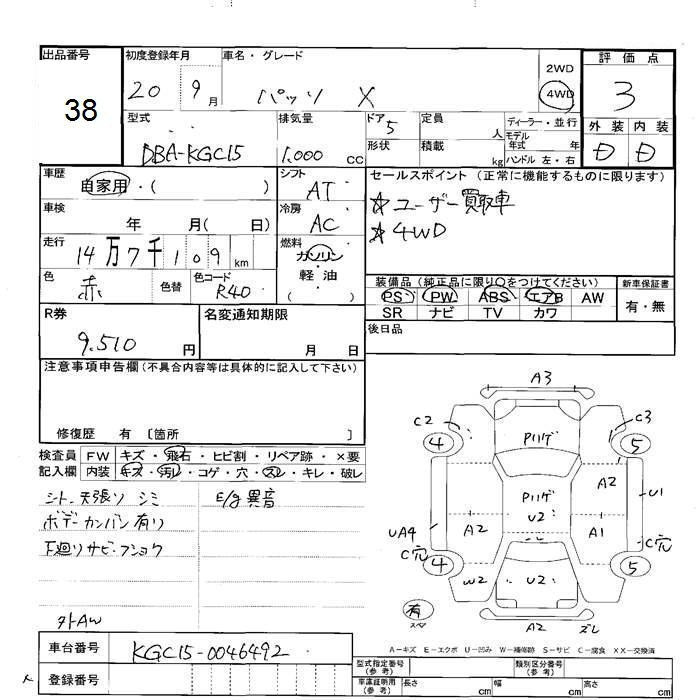 出品番号
38
初度登録年月
20 9月
車名・グレード
パッソ X
2WD
4WD
評価点
3
外装 内装
D D
型式
DBA-KGC15
排気量
1.000 cc
ドア 5
形状
定員 人
積載 kg
ディーラー・並行
モデル年式 年
ハンドル 左・右
車歴
自家用・( )
車検
年 月( 日)
走行
14万7千109km
色
赤
色替
色コード
R40
シフト
AT
冷房
AC
燃料
ガソリン
軽・油
( )
セールスポイント(正常に機能するものに限ります)
☆ユーザー買取車
☆4WD
装備品(純正品に限り○をつけてください)
PS PW ABS エアB AW
SR ナビ TV カワ
新車保証書
有・無
後日品
R券
9.510 円
名変通知期限
月 日
注意事項申告欄(不具合内容等は具体的に記入して下さい)
修復歴 有 〔箇所 〕
検査員記入欄
FW キズ・飛石・ヒビ割・リペア跡・×要
内装 キズ・汚レ・コゲ・穴・スレ・キレ・破レ
シート 天張リ シミ
ボデーカンバン有リ
下廻リサビ・フショク
E/g異音
外AW
A3
C2
4
C3
5
Pハゲ
A2
U1
Pハゲ
U2
A2
A1
UA4
C穴
4
C穴
5
W2
U2
有
スペア
A2
ズレ
A-キズ E-エクボ U-凹み W-補修跡 S-サビ C-腐食 XX-交換済
車台番号
KGC15-0046492
登録番号
型式指定番号(参考)
類別区分番号(参考)
車庫証明用(参考)
長さ cm
幅 cm
高さ cm